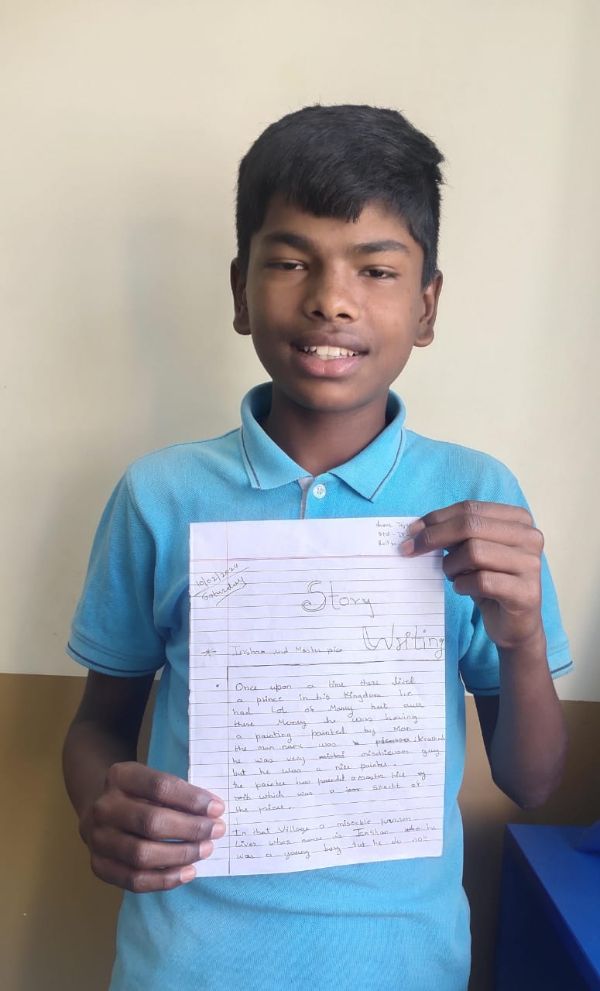 10/02/2024
Saturday
Story
Writing
* Jenshan and Master pice
• Once upon a time there lived
a prince in his Kingdom he
had Lot of Money but
these Money he was having
a painting painted by Man
the man name was
he was very mischievous guy
but he was a nice painter.
he painter has a master
which was a shecht of
the prince.
In that Village a miserble person
Lives whos name is Jenshan
was a young boy but he do not